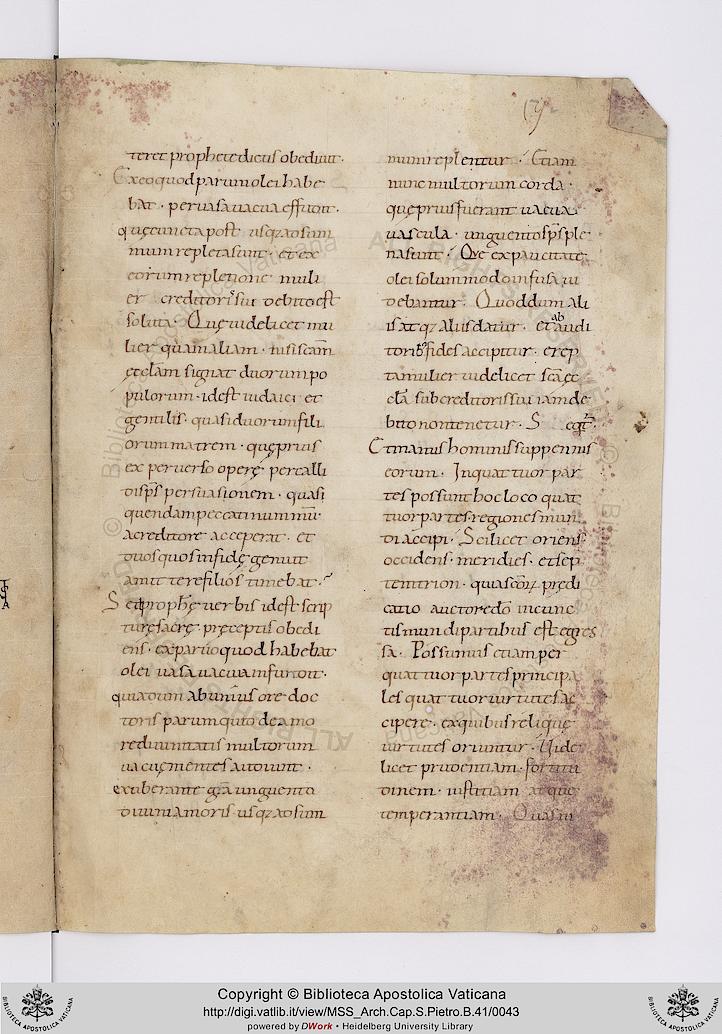 teret prophete dictis obediuit.
Ex eo quod parum olei habe
bat. per uasa uacua effudit.
quę cuncta post usq; ad sum
mum repleta sunt. et ex
eorum repletione muli
er creditoris sui debito est
soluta. Quę uidelicet mu
lier quam aliam. nisi scam
ęcclam signat duorum po
pulorum. id est iudaici et
gentilis. quasi duorum fili
orum matrem. quę prius
ex peruerso operę. per calli
di sps persuasionem. quasi
quendam peccati nummu.
a creditore acceperat. et
duos quos in fide genuit
amittere filios timebat.
Sed prophę uerbis id est scrip
turę sacrę. pręceptis obedi
ens. ex paruo quod habebat
olei uasa uacua infudit.
quia dum ab unius ore doc
toris parum quid de amo
re diuinitatis multorum
uacuę mentes audiunt.
exuberante gra unguento
diuini amoris. usq; ad sum
mum replentur. Etiam
nunc multorum corda.
quę prius fuerant uacua.
uascula. unguento sps ple
na sunt. Que ex paucitate
olei solummodo infusa ui
debantur. Quod dum ali
is atq; aliis datur. et ab audi
toribs fides accipitur. erep
ta mulier uidelicet sca ęc
cla sub creditoris sui iam de
bito non tenetur. S
Et manus hominis sub pennis
eorum. In quattuor par
tes possunt hoc loco quat
tuor partes. regiones mun
di accipi. Scilicet oriens.
occidens. meridies. et sep
temtrion. quia scoru prędi
catio auctore do in cunc
tis mundi partibus est egres
sa. Possumus etiam per
quattuor partes principa
les quattuor uirtutes ac
cipere. ex quibus relique
uirtutes oriuntur. Uide
licet prudentiam. fortitu
dinem. iustitiam atque
temperantiam. Quas in
Copyright © Biblioteca Apostolica Vaticana
http://digi.vatlib.it/view/MSS_Arch.Cap.S.Pietro.B.41/0043
powered by DWork • Heidelberg University Library
BIBLIOTECA APOSTOLICA VATICANA
BIBLIOTECA APOSTOLICA VATICANA